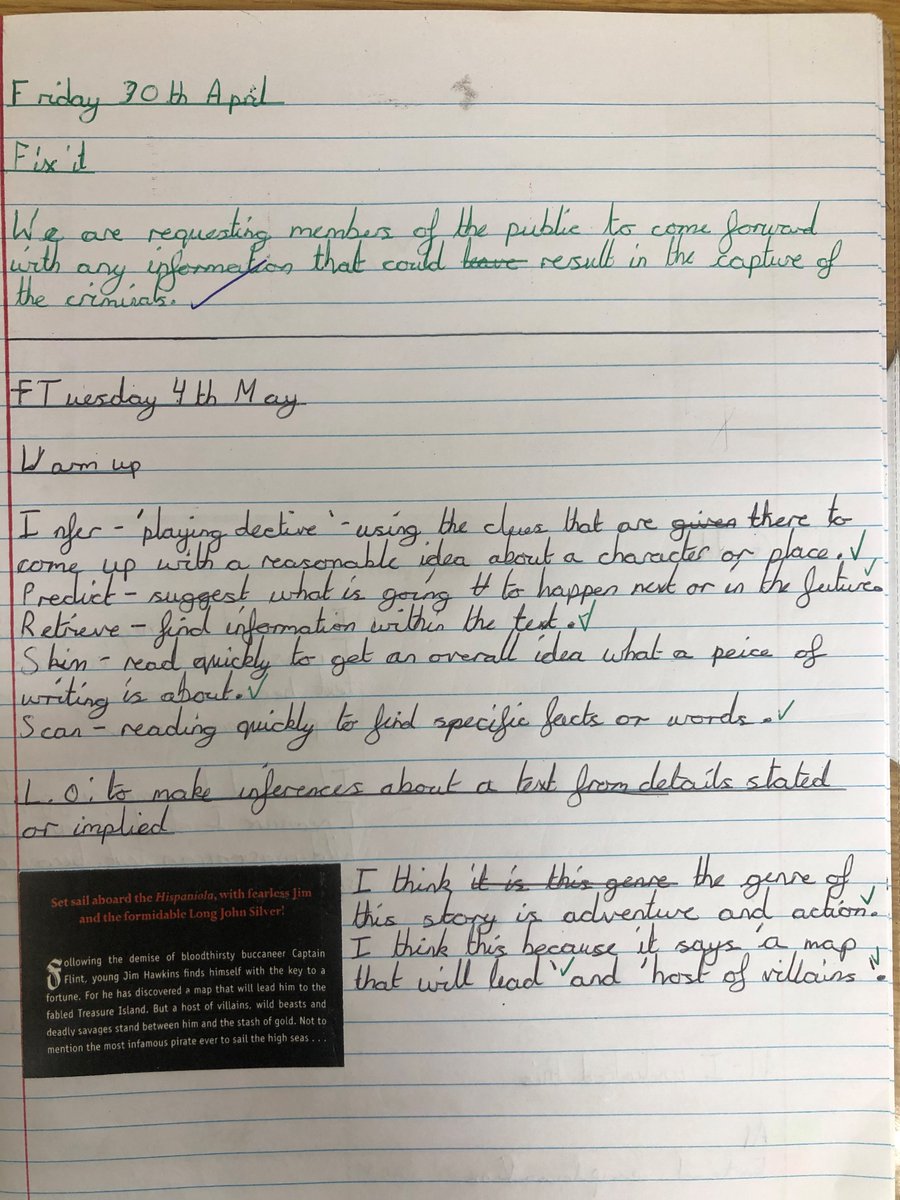 Friday 30th April
Fix it
We are requesting members of the public to come forward
with any information that could leave result in the capture of
the criminals.
FTuesday 4th May
Warm up
Infer - 'playing dective' - using the clues that are given there to
come up with a reasonable idea about a character or place.
Predict - suggest what is going tt to happen next or in the future.
Retrieve - find information within the text.
Skim - read quickly to get an overall idea what a peice of
writing is about.
Scan - reading quickly to find specific facts or words.
L.O: to make inferences about a text from details stated
or implied
Set sail aboard the Hispaniola, with fearless Jim
and the formidable Long John Silver!
Following the demise of bloodthirsty buccaneer Captain
Flint, young Jim Hawkins finds himself with the key to a
fortune. For he has discovered a map that will lead him to the
fabled Treasure Island. But a host of villains, wild beasts and
deadly savages stand between him and the stash of gold. Not to
mention the most infamous pirate ever to sail the high seas . . .
I think it is this genre the genre of
this story is adventure and action.
I think this because it says 'a map
that will lead' and 'host of villains'.